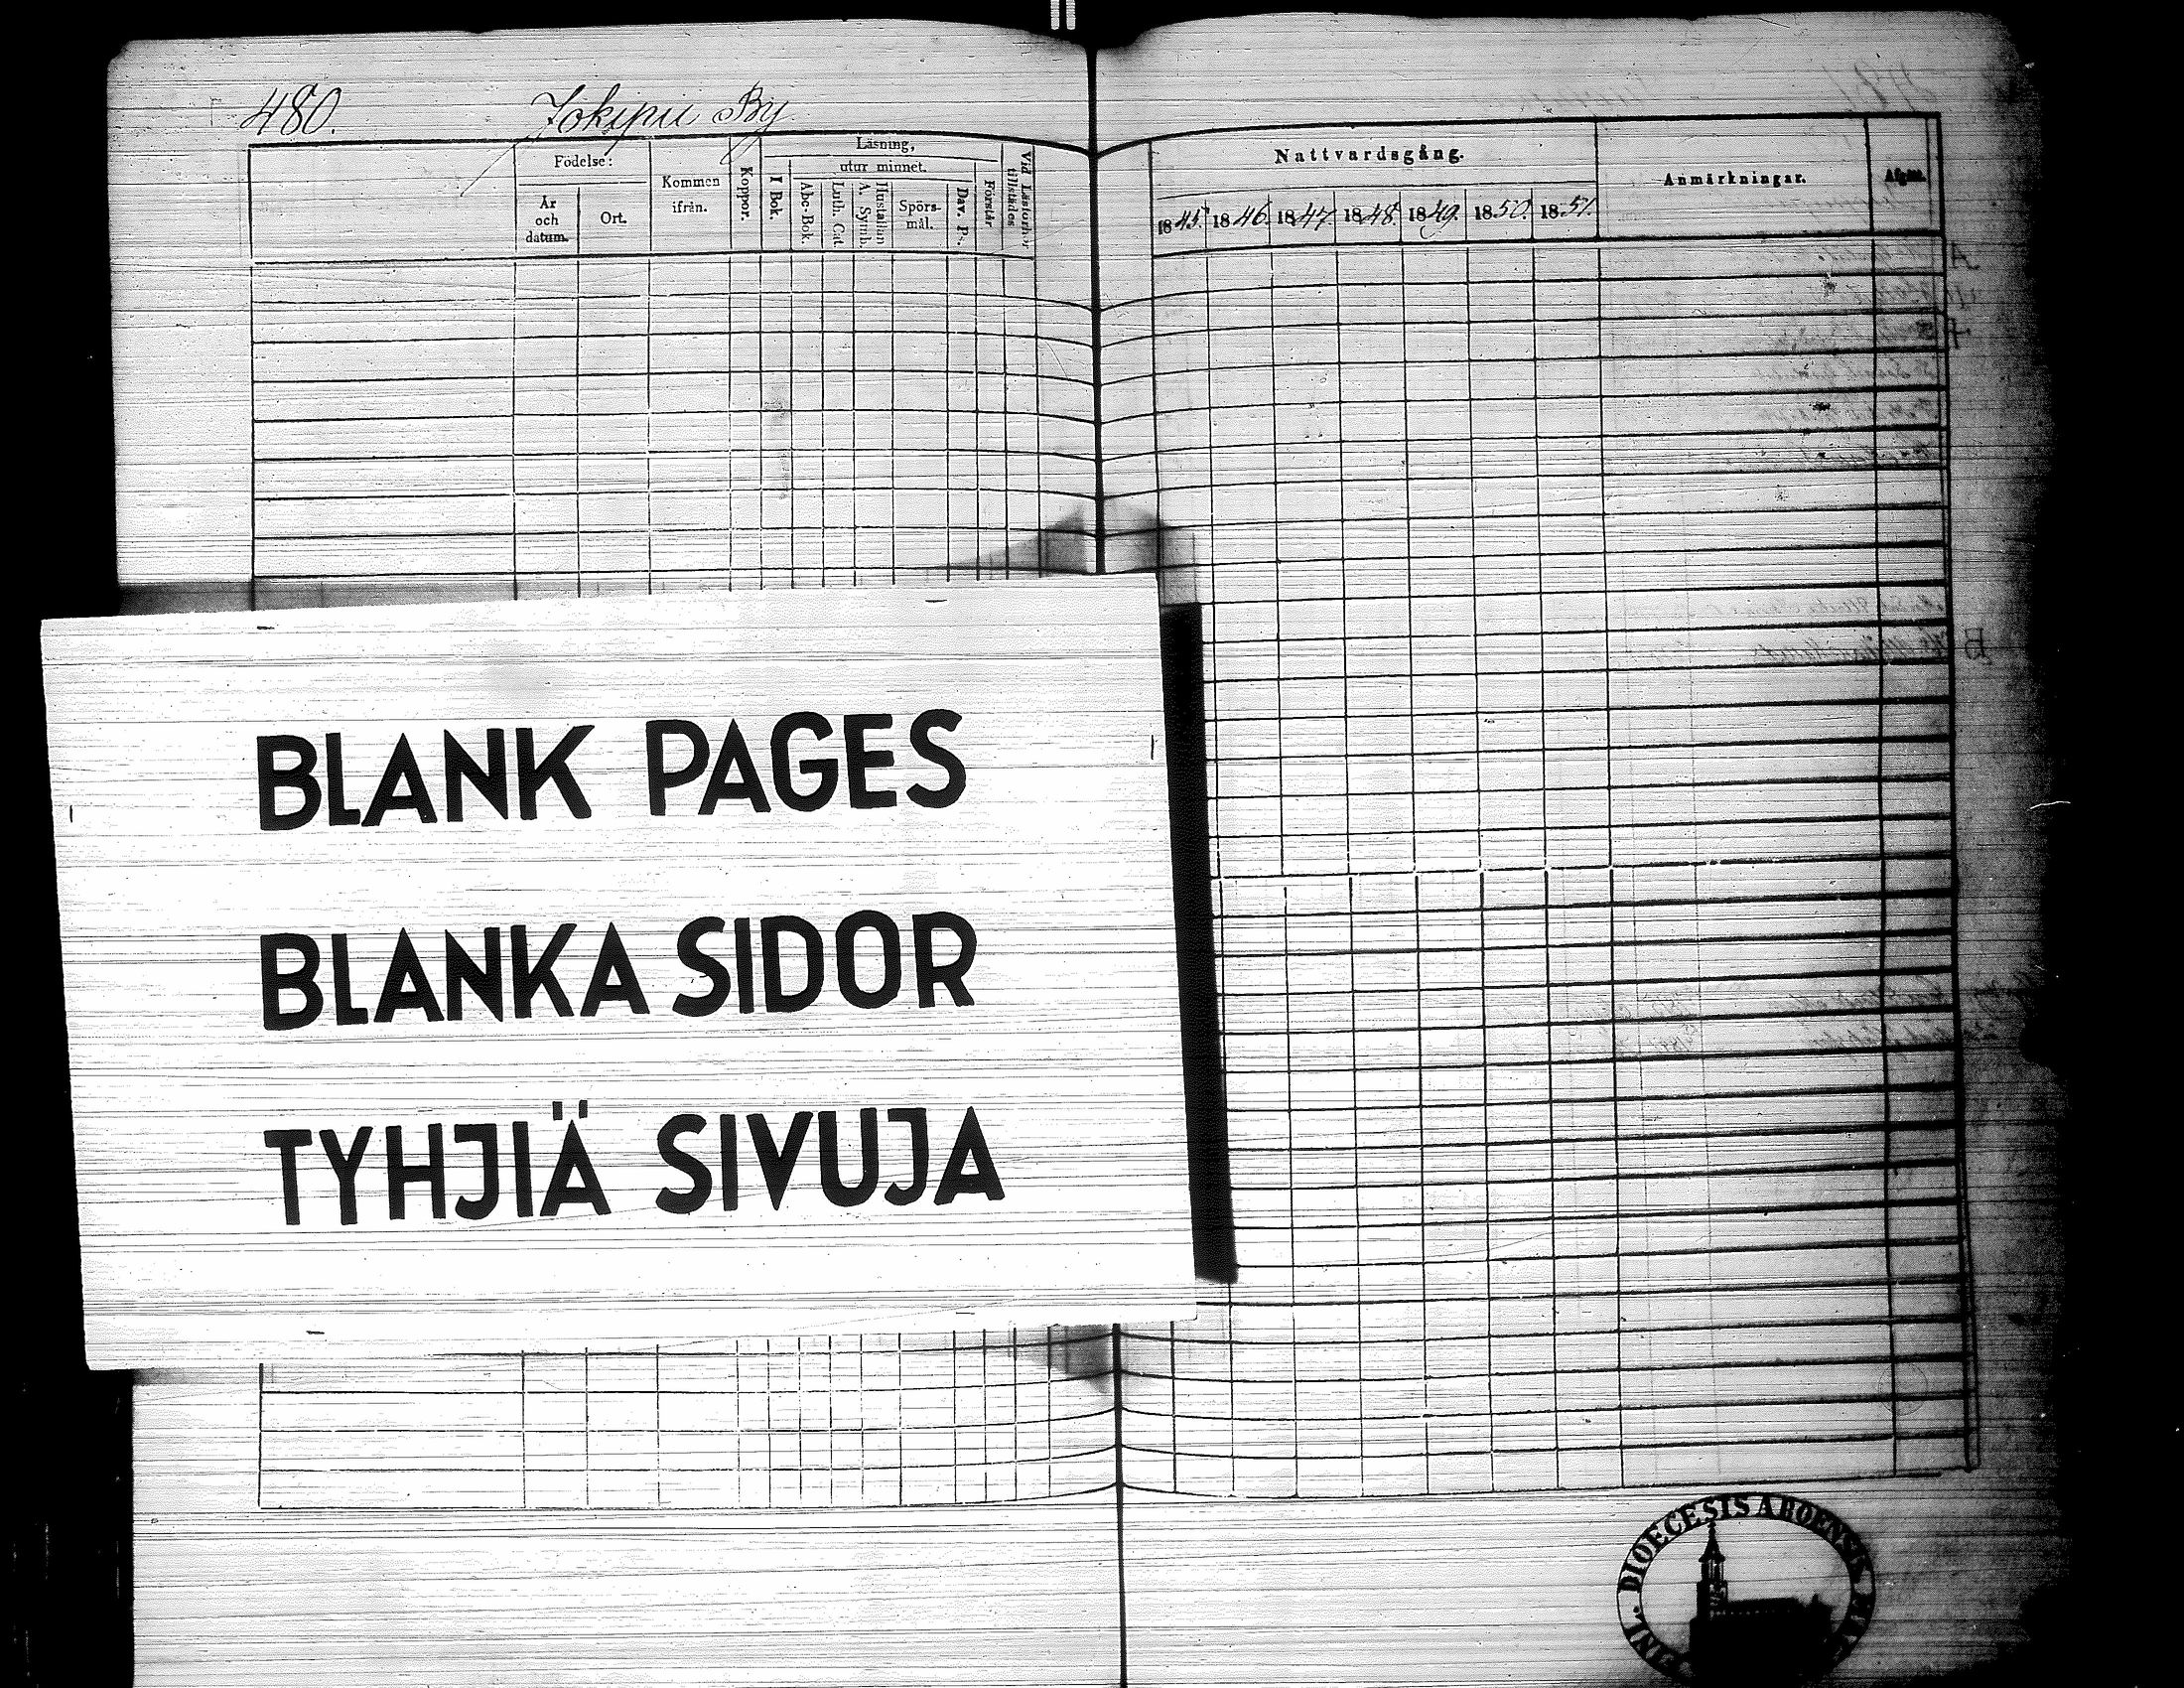 480. Jokipii By
Födelse:
År
och
datum.
Ort.
Kommen
ifrån.
Koppor.
Läsning,
I Bok.
utur minnet.
Abc-Bok.
Luth. Cat.
A. Symb.
Hustaflan
Spörs-
mål.
Dav. Ps.
Förstår
Vid Läsförhör
tillstädes
Nattvardsgång.
1845. 1846. 1847. 1848. 1849. 1850. 1851.
Anmärkningar.
Afgått.
BLANK PAGES
BLANKA SIDOR
TYHJIÄ SIVUJA
DIOECESIS ABOENSIS